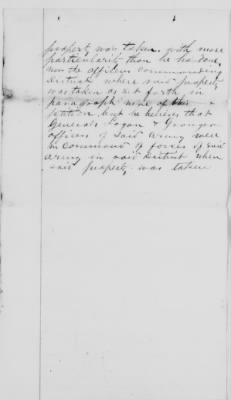 property was taken with more
particularity than he has done,
nor the officers commanding
district where said property
was taken as set forth in
paragraph nine of this
petition but he believes that
Generals Logan & Granger
officers of said army were
in command of forces of said
army in said district when
said property was taken